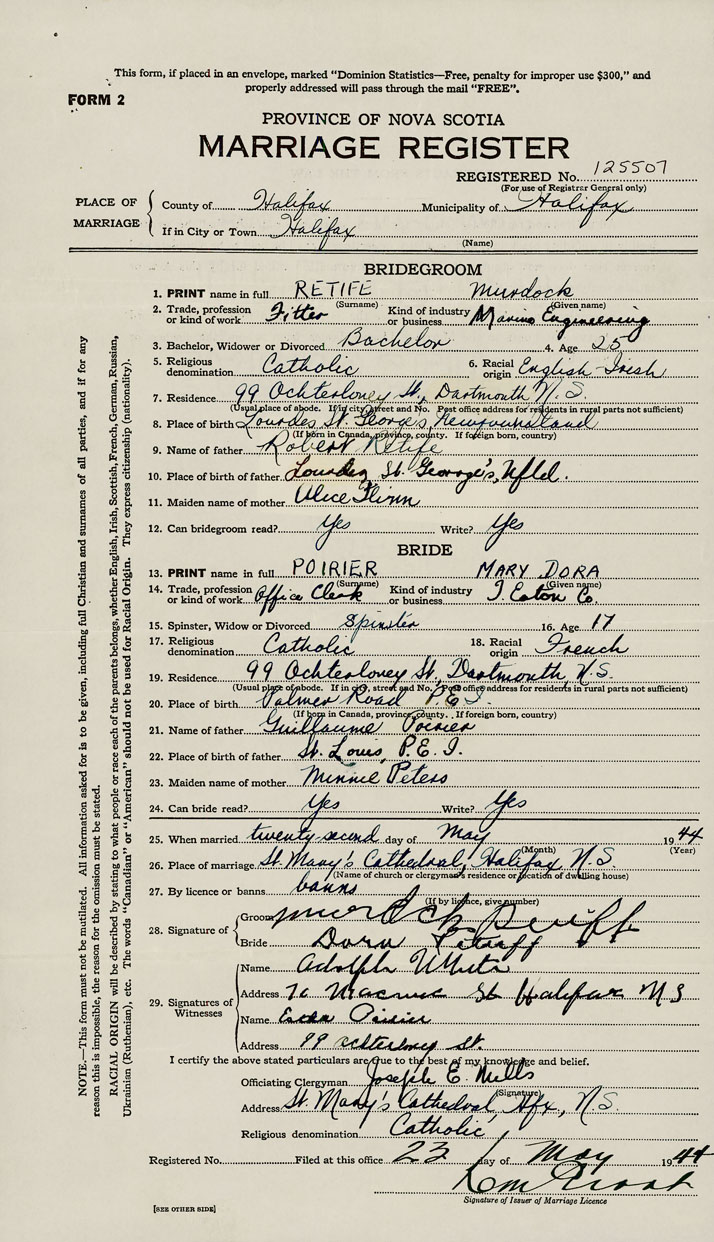 This form, if placed in an envelope, marked "Dominion Statistics—Free, penalty for improper use $300," and
properly addressed will pass through the mail "FREE".
FORM 2
PROVINCE OF NOVA SCOTIA
MARRIAGE REGISTER
REGISTERED No. 125507
(For use of Registrar General only)
PLACE OF MARRIAGE
County of Halifax Municipality of Halifax
If in City or Town Halifax
(Name)
BRIDEGROOM
1. PRINT name in full RETIFE Murdock
(Surname) (Given name)
2. Trade, profession or kind of work Fitter Kind of industry or business Marine Engineering
3. Bachelor, Widower or Divorced Bachelor 4. Age 25
5. Religious denomination Catholic 6. Racial origin English-Irish
7. Residence 99 Ochterloney St, Dartmouth N.S.
(Usual place of abode. If in city, street and No. Post office address for residents in rural parts not sufficient)
8. Place of birth Lourdes St. George's, Newfoundland
(If born in Canada, province, county. If foreign born, country)
9. Name of father Robert Retife
10. Place of birth of father Lourdes St. George's, Nfld.
11. Maiden name of mother Alice Flinn
12. Can bridegroom read? Yes Write? Yes
BRIDE
13. PRINT name in full POIRIER MARY DORA
(Surname) (Given name)
14. Trade, profession or kind of work Office Clerk Kind of industry or business T. Eaton Co.
15. Spinster, Widow or Divorced Spinster 16. Age 17
17. Religious denomination Catholic 18. Racial origin French
19. Residence 99 Ochterloney St, Dartmouth, N.S.
(Usual place of abode. If in city, street and No. Post office address for residents in rural parts not sufficient)
20. Place of birth Palmer Road P.E.I.
(If born in Canada, province, county. If foreign born, country)
21. Name of father Guillaume Poirier
22. Place of birth of father St. Louis, P.E.I.
23. Maiden name of mother Minnie Peters
24. Can bride read? Yes Write? Yes
25. When married twenty-second day of May 1944
(Month) (Year)
26. Place of marriage St. Mary's Cathedral, Halifax N.S.
(Name of church or clergyman's residence or location of dwelling house)
27. By licence or banns banns
(If by licence, give number)
28. Signature of
Groom Murdock
Bride Dora
29. Signatures of Witnesses
Name Adolph White
Address 70 St Halifax N S
Name Poirier
Address 99 Ochterloney St.
I certify the above stated particulars are true to the best of my knowledge and belief.
Officiating Clergyman Joseph E. Mills
(Signature)
Address St. Mary's Cathedral, Hfx, N.S.
Religious denomination Catholic
Registered No. Filed at this office 23 day of May 1944
Signature of Issuer of Marriage Licence
[SEE OTHER SIDE]
NOTE.—This form must not be mutilated. All information asked for is to be given, including full Christian and surnames of all parties, and if for any
reason this is impossible, the reason for the omission must be stated.
RACIAL ORIGIN will be described by stating to what people or race each of the parents belongs, whether English, Irish, Scottish, French, German, Russian,
Ukrainian (Ruthenian), etc. The words "Canadian" or "American" should not be used for Racial Origin. They express citizenship (nationality).